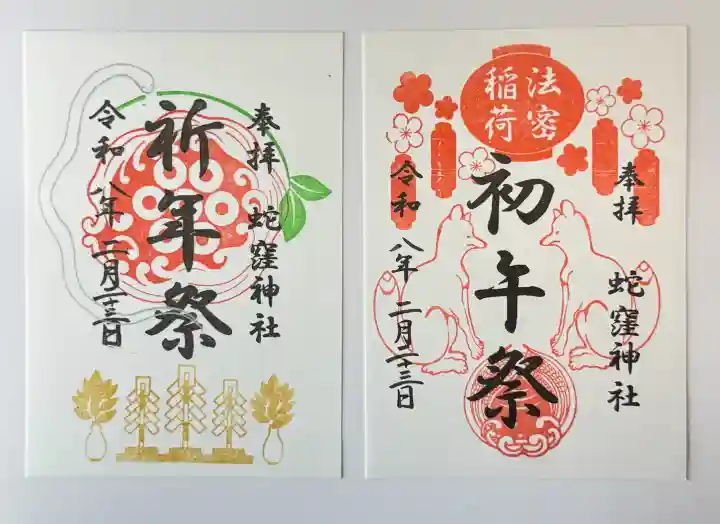 奉拝 蛇窪神社
祈年祭
令和八年二月二十三日
法密
稲荷
奉拝 蛇窪神社
初午祭
令和八年二月二十三日